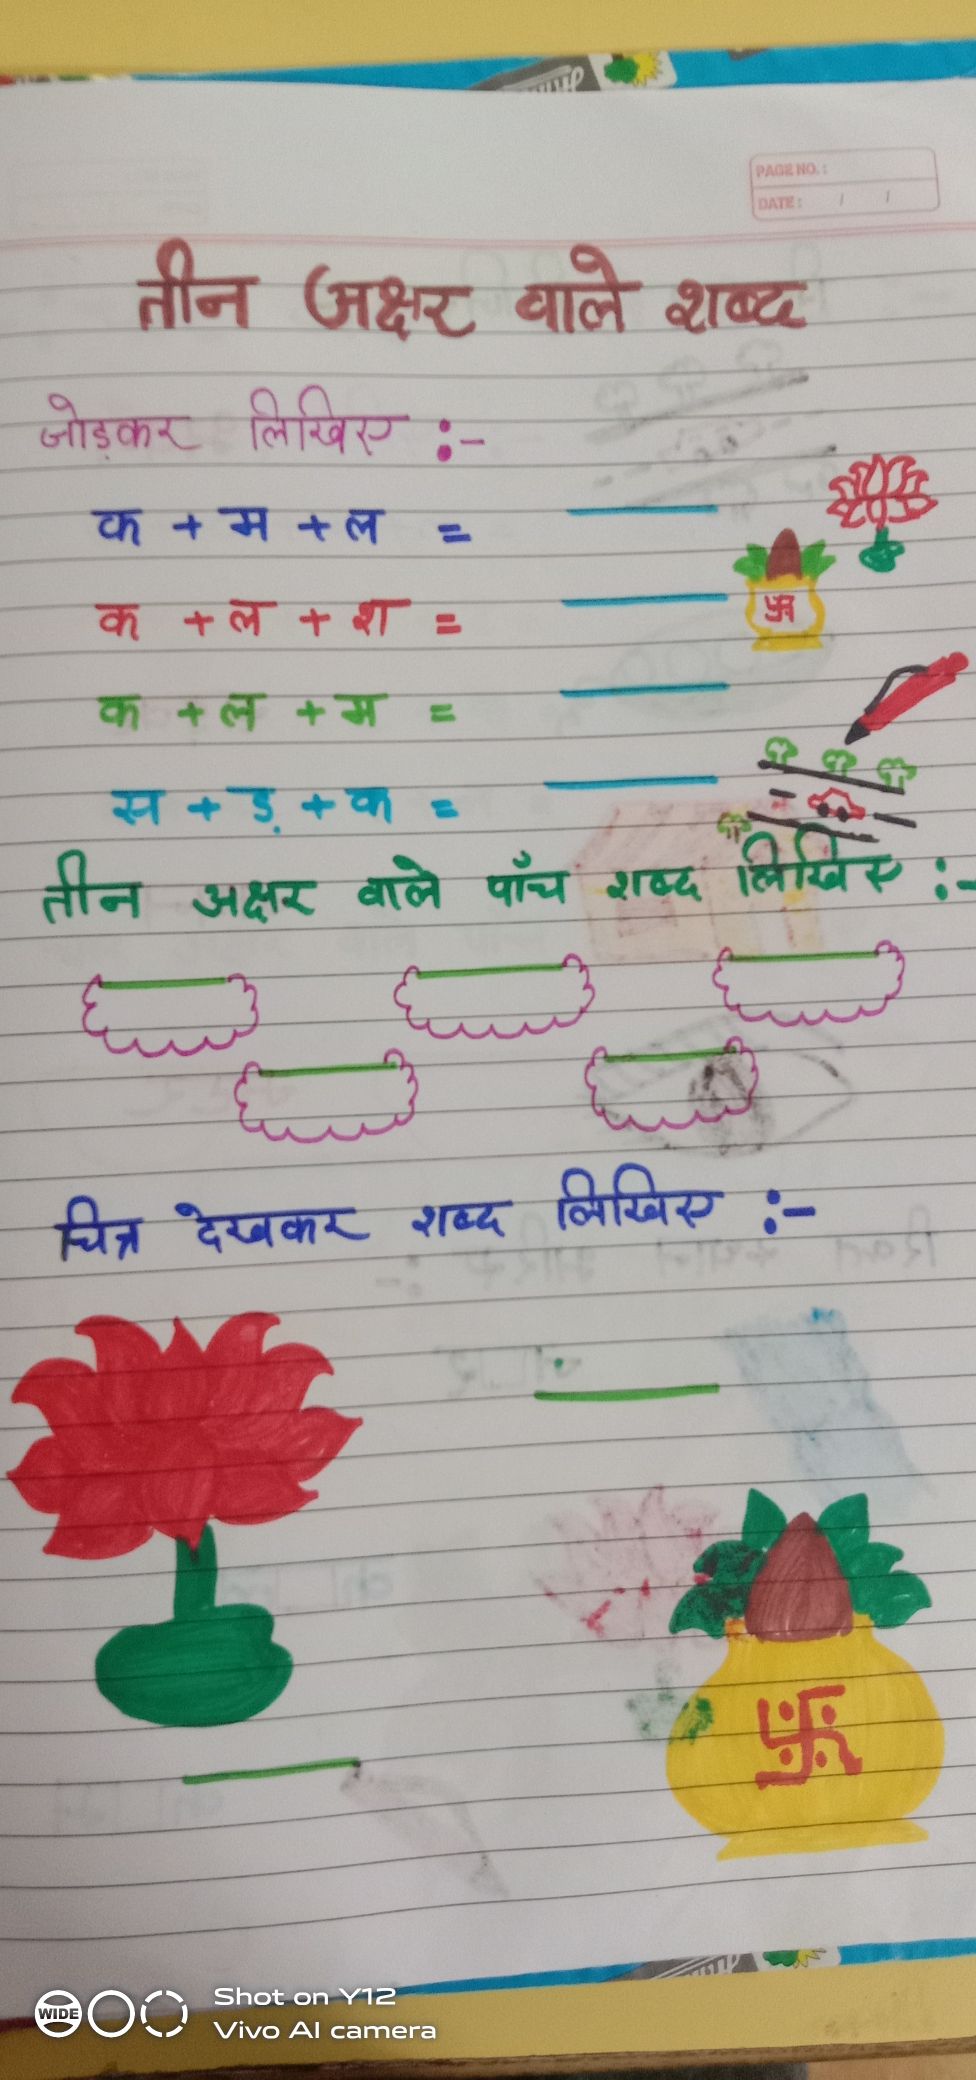 PAGE NO. :
DATE : / /
तीन अक्षर वाले शब्द
जोड़कर लिखिए :-
क + म + ल =
क + ल + श =
क + ल + म =
स + ड़ + क =
तीन अक्षर वाले पाँच शब्द लिखिए :-
चित्र देखकर शब्द लिखिए :-
WIDE
Shot on Y12
Vivo AI camera